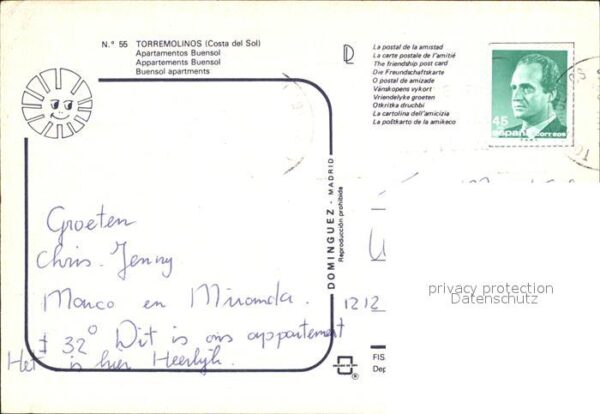 N.° 55 TORREMOLINOS (Costa del Sol)
Apartamentos Buensol
Appartements Buensol
Buensol apartments
La postal de la amistad
La carte postale de l'amitié
The friendship post card
Die Freundschaftskarte
O postal de amizade
Vänskopens vykort
Vriendelyke groeten
Otkritka druchbi
La cartolina dell'amicizia
La poŝtkarto de la amikeco
45
españa correos
Groeten
Chris. Jenny
Marco en Miranda.
± 32° Dit is ons appartement
Het is hier Heerlijk.
DOMINGUEZ - MADRID
Reproducción prohibida
1212
privacy protection
Datenschutz
FIS
Dep